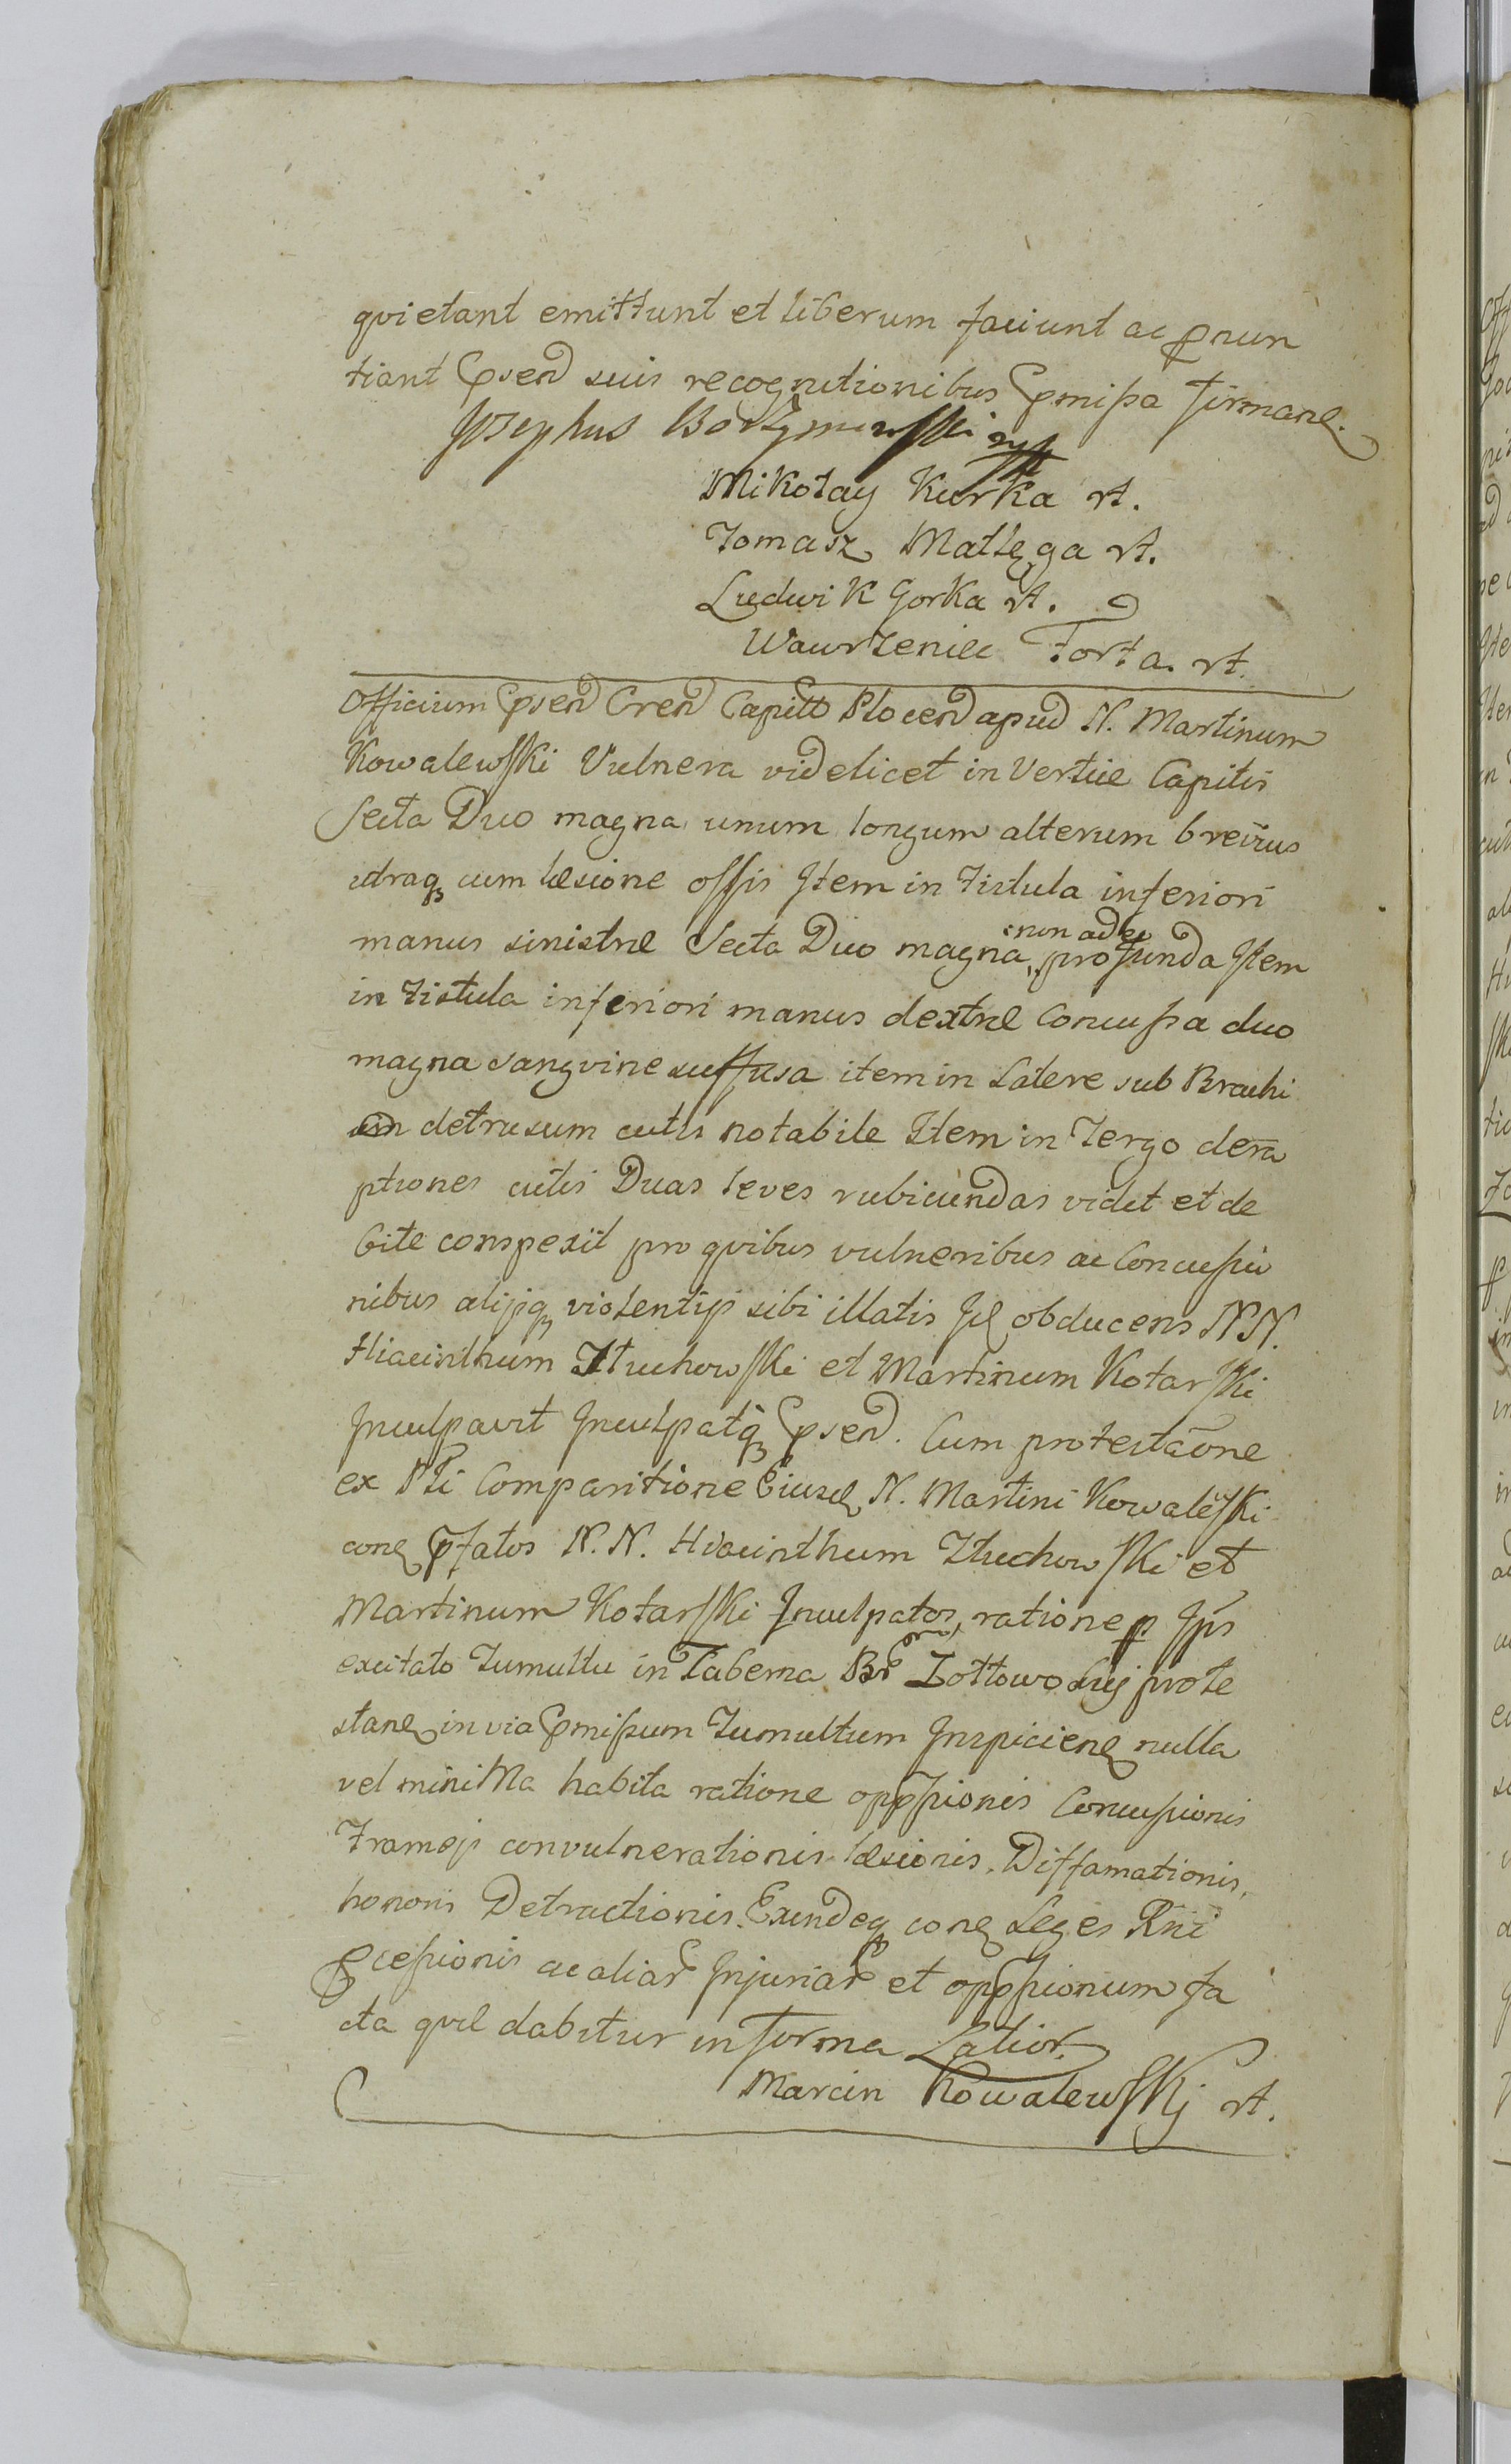 qvietant emittunt et liberum faciunt ac pnun
tiant Psen suis recognitionibus Pmissa firman.
Josephus
Mikołay Kurka rt.
Tomasz Matlęga rt.
Ludwik Gorka rt.
Wawrzeniec Forta. rt.
Officium Psen Cren Capitt Plocen apud N. Martinum
Kowalewski Vulnera videlicet in Vertice Capitis
Secta Duo magna unum longum alterum brevius
utraq cum læsione ossis Item in fistula inferiori
manus sinistræ Secta Duo magna, non adeo profunda Item
in fistula inferiori manus dextræ Concussa duo
magna sangvine suffusa item in Latere sub Brachi
detrusum cutis notabile Item in Tergo dera
ptiones cutis Duas leves rubicundas vidit et de
bite conspexit pro qvibus vulneribus ac Concussio
nibus alijsq violentijs sibi illatis obducens NN.
Hiacinthum Itruchowski et Martinum Kotarski
Inculpavit Inculpatq Psen. Cum protestaone
ex Pti Comparitione Eiusd N. Martini Kowalewski
con Pfatos N. N. Hiacinthum Ztuchowski et
Martinum Kotarski Inculpatos, ratione p Ips
excitato Tumultu in Taberna Bonor Zołtowo Luij prote
stan in via Pmissum Tumultum Inspicien nulla
vel minima habita ratione oppssionis Concussionis
Frameji convulnerationis læsionis. Diffamationis,
honoris Detractionis. Exindeq con Leges Rni
Pcessionis ac aliar Injuriar et oppssionum fa
cta qvæ dabitur in forma Latior.
Marcin Kowalewskj rt.